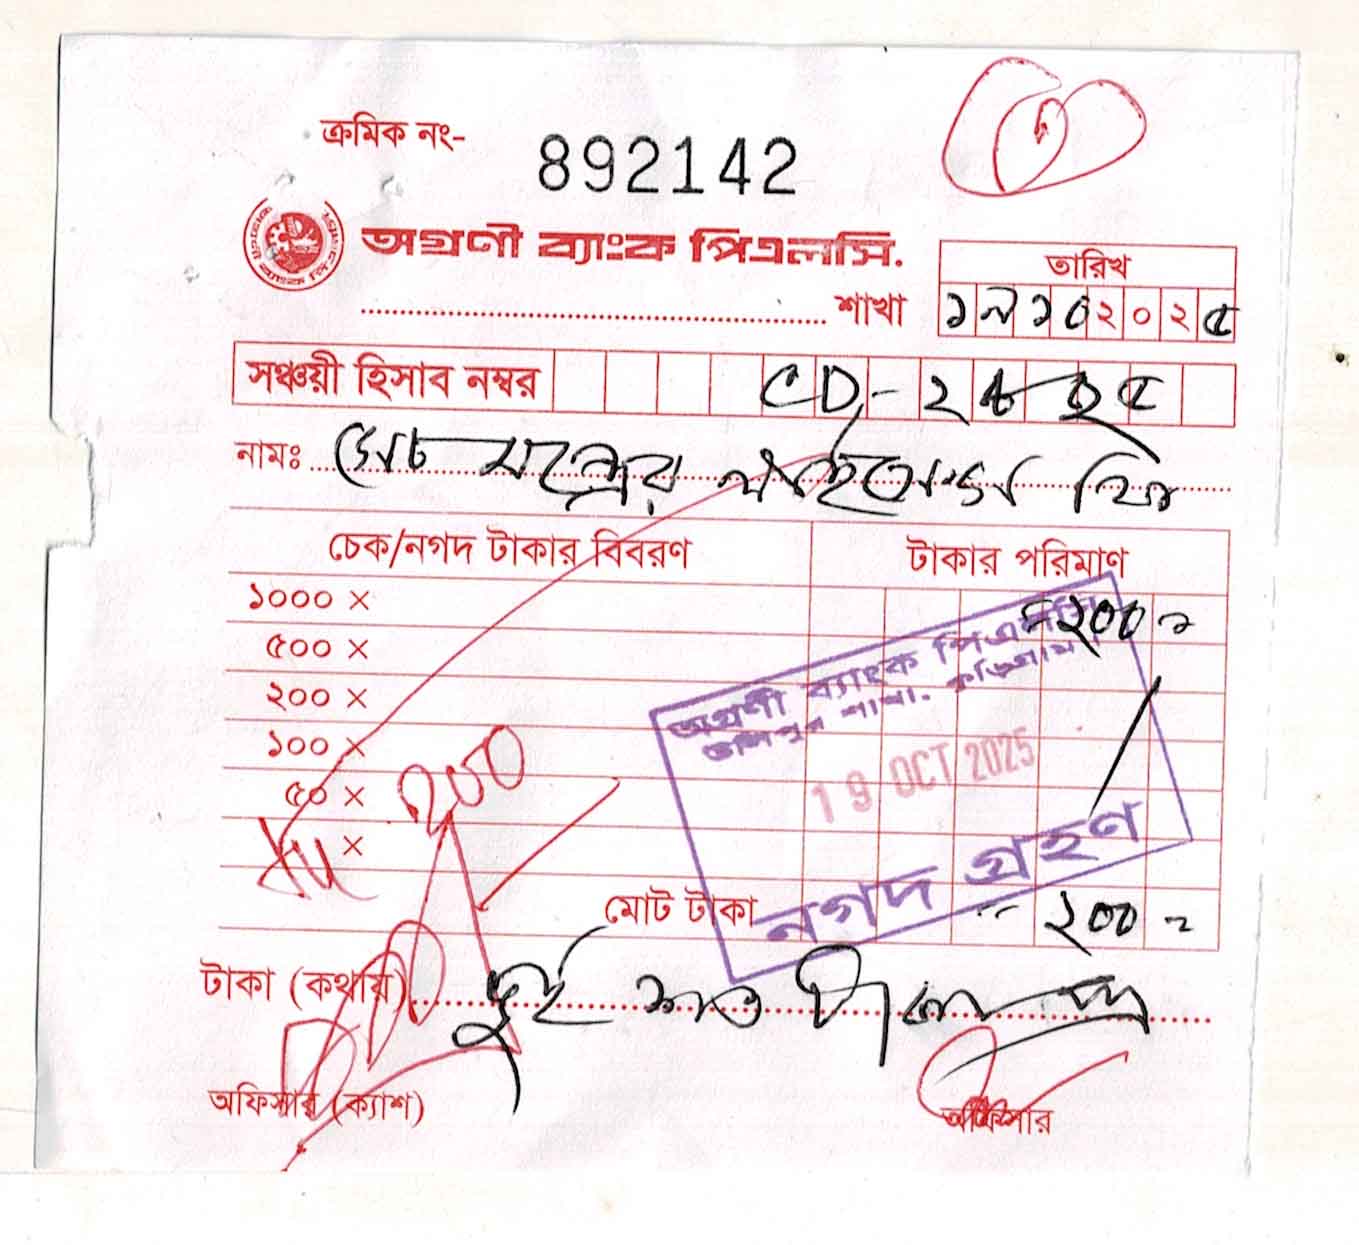 ক্রমিক নং- 892142
অগ্রণী ব্যাংক পিএলসি.
শাখা
তারিখ
১৯১০২০২৫
সঞ্চয়ী হিসাব নম্বর CD-
নামঃ সেচ যন্ত্রের লাইসেন্স ফি
চেক/নগদ টাকার বিবরণ টাকার পরিমাণ
১০০০ × = ২০০ =
৫০০ ×
২০০ ×
১০০ ×
৫০ ×
×
২০০
অগ্রণী ব্যাংক পিএলসি
শাখা, কুড়িগ্রাম।
19 OCT 2025
নগদ গ্রহণ
মোট টাকা = ২০০ =
টাকা (কথায়) দুই শত টাকা মাত্র
অফিসার (ক্যাশ) অফিসার